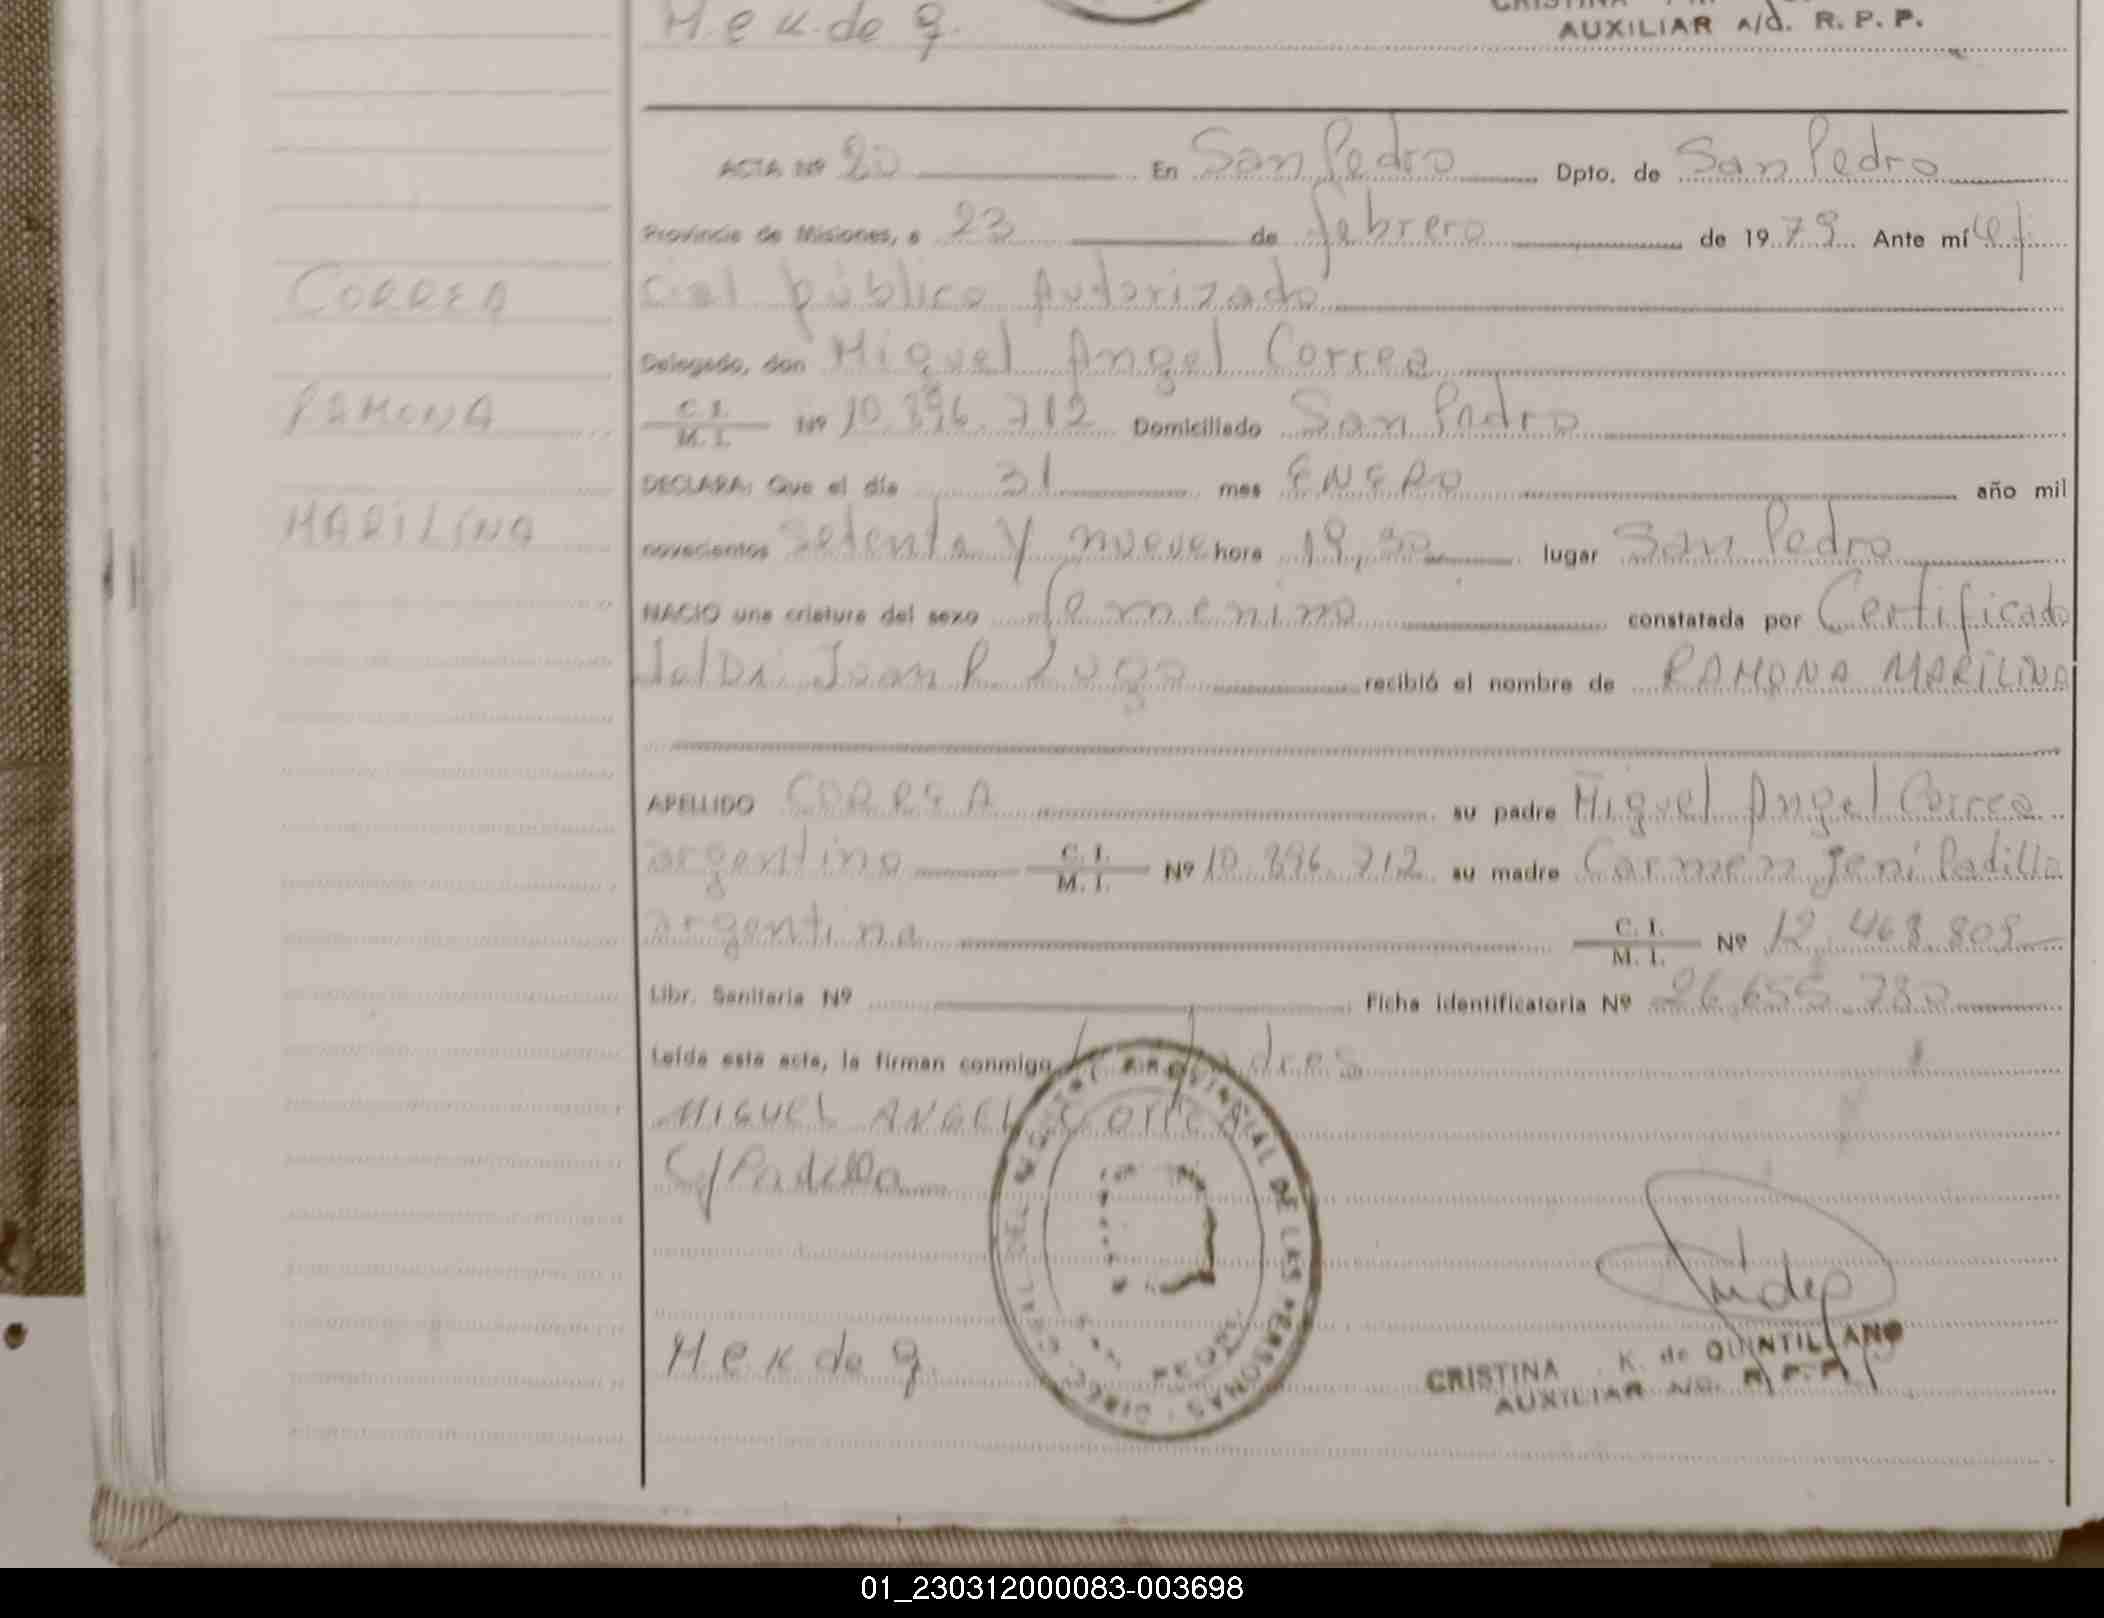 H. e K. de q.
AUXILIAR A/d. R. P. P.
ACTA Nº 20 En San Pedro Dpto. de San Pedro
Provincia de Misiones, a 23 de febrero de 1979 Ante mí Ofi
CORREA
cial público Autorizado
Delegado, don Miguel Angel Correa
RAMONA
C. I. / M. I. Nº 10.896.712 Domiciliado San Pedro
DECLARA: Que el día 31 mes ENERO año mil
MARILINA
novecientos setenta y nueve hora 19,30 lugar San Pedro
NACIO una criatura del sexo femenino constatada por Certificado
Juan R. Lugo recibió el nombre de RAMONA MARILINA
APELLIDO CORREA su padre Miguel Angel Correa
argentino C. I. / M. I. Nº 10.896.712 su madre Carmen Jeni Padilla
argentina C. I. / M. I. Nº 12.468.808
Libr. Sanitaria Nº Ficha identificatoria Nº 26.655.780
Leída esta acta, la firman conmigo los padres
MIGUEL ANGEL Correa
C/Padilla
H. e K de q.
CRISTINA K. de QUINTILLANO
AUXILIAR A/d. R. P. P.
DIREC. GRAL. DEL REGISTRO PROVINCIAL DE LAS PERSONAS
SAN PEDRO
01_230312000083-003698